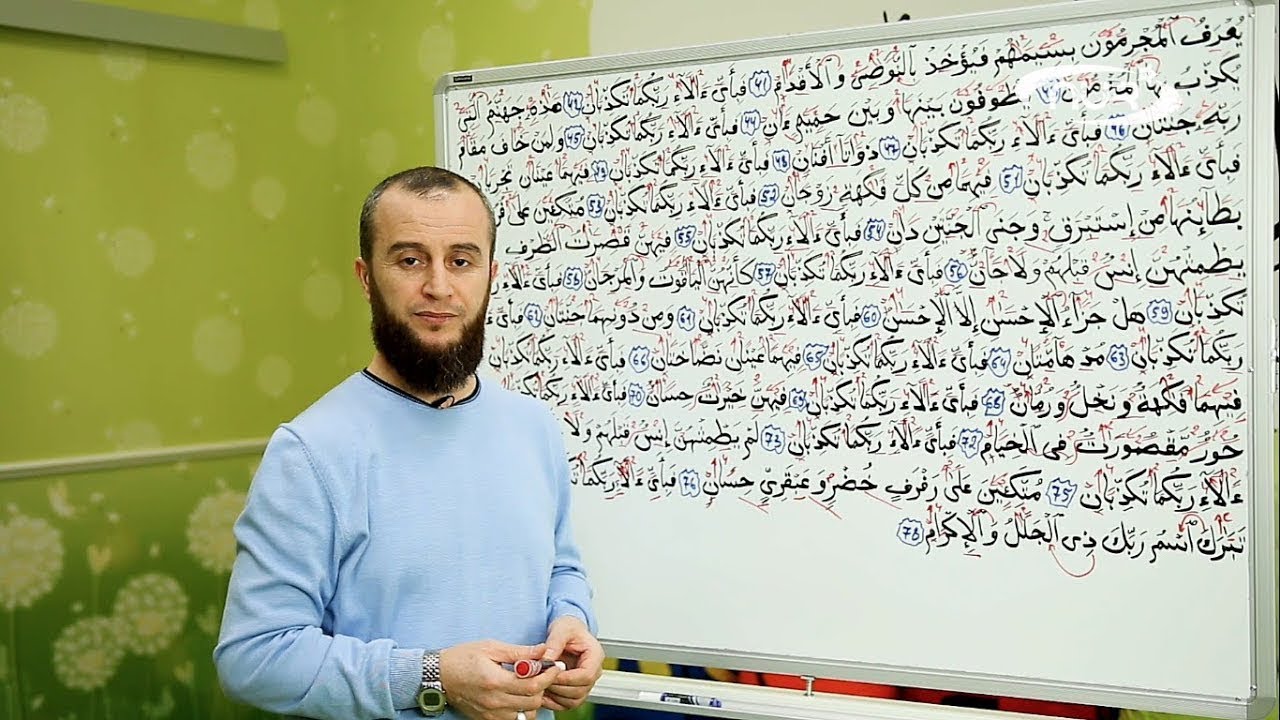 يُعْرَفُ ٱلْمُجْرِمُونَ بِسِيمَٰهُمْ فَيُؤْخَذُ بِٱلنَّوَٰصِى وَٱلْأَقْدَامِ ٤١ فَبِأَىِّ ءَالَآءِ رَبِّكُمَا تُكَذِّبَانِ ٤٢ هَٰذِهِۦ جَهَنَّمُ ٱلَّتِى
يُكَذِّبُ بِهَا ٱلْمُجْرِمُونَ ٤٣ يَطُوفُونَ بَيْنَهَا وَبَيْنَ حَمِيمٍ ءَانٍ ٤٤ فَبِأَىِّ ءَالَآءِ رَبِّكُمَا تُكَذِّبَانِ ٤٥ وَلِمَنْ خَافَ مَقَامَ
رَبِّهِۦ جَنَّتَانِ ٤٦ فَبِأَىِّ ءَالَآءِ رَبِّكُمَا تُكَذِّبَانِ ٤٧ ذَوَاتَآ أَفْنَانٍ ٤٨ فَبِأَىِّ ءَالَآءِ رَبِّكُمَا تُكَذِّبَانِ ٤٩ فِيهِمَا عَيْنَانِ تَجْرِيَانِ
فَبِأَىِّ ءَالَآءِ رَبِّكُمَا تُكَذِّبَانِ ٥١ فِيهِمَا مِن كُلِّ فَٰكِهَةٍ زَوْجَانِ ٥٢ فَبِأَىِّ ءَالَآءِ رَبِّكُمَا تُكَذِّبَانِ ٥٣ مُتَّكِـِٔينَ عَلَىٰ
بَطَآئِنُهَا مِنْ إِسْتَبْرَقٍ وَجَنَى ٱلْجَنَّتَيْنِ دَانٍ ٥٤ فَبِأَىِّ ءَالَآءِ رَبِّكُمَا تُكَذِّبَانِ ٥٥ فِيهِنَّ قَٰصِرَٰتُ ٱلطَّرْفِ
يَطْمِثْهُنَّ إِنسٌ قَبْلَهُمْ وَلَا جَآنٌّ ٥٦ فَبِأَىِّ ءَالَآءِ رَبِّكُمَا تُكَذِّبَانِ ٥٧ كَأَنَّهُنَّ ٱلْيَاقُوتُ وَٱلْمَرْجَانُ ٥٨ فَبِأَىِّ ءَالَآءِ
تُكَذِّبَانِ ٥٩ هَلْ جَزَآءُ ٱلْإِحْسَٰنِ إِلَّا ٱلْإِحْسَٰنُ ٦٠ فَبِأَىِّ ءَالَآءِ رَبِّكُمَا تُكَذِّبَانِ ٦١ وَمِن دُونِهِمَا جَنَّتَانِ ٦٢ فَبِأَىِّ
رَبِّكُمَا تُكَذِّبَانِ ٦٣ مُدْهَآمَّتَانِ ٦٤ فَبِأَىِّ ءَالَآءِ رَبِّكُمَا تُكَذِّبَانِ ٦٥ فِيهِمَا عَيْنَانِ نَضَّاخَتَانِ ٦٦ فَبِأَىِّ ءَالَآءِ رَبِّكُمَا تُكَذِّبَانِ
فِيهِمَا فَٰكِهَةٌ وَنَخْلٌ وَرُمَّانٌ ٦٨ فَبِأَىِّ ءَالَآءِ رَبِّكُمَا تُكَذِّبَانِ ٦٩ فِيهِنَّ خَيْرَٰتٌ حِسَانٌ ٧٠ فَبِأَىِّ ءَالَآءِ رَبِّكُمَا
حُورٌ مَّقْصُورَٰتٌ فِى ٱلْخِيَامِ ٧٢ فَبِأَىِّ ءَالَآءِ رَبِّكُمَا تُكَذِّبَانِ ٧٣ لَمْ يَطْمِثْهُنَّ إِنسٌ قَبْلَهُمْ وَلَا
ءَالَآءِ رَبِّكُمَا تُكَذِّبَانِ ٧٥ مُتَّكِـِٔينَ عَلَىٰ رَفْرَفٍ خُضْرٍ وَعَبْقَرِىٍّ حِسَانٍ ٧٦ فَبِأَىِّ ءَالَآءِ رَبِّكُمَا
تَبَٰرَكَ ٱسْمُ رَبِّكَ ذِى ٱلْجَلَٰلِ وَٱلْإِكْرَامِ ٧٨